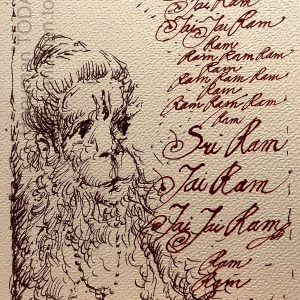 Sri Ram
Jai Jai Ram
Ram
Ram Ram Ram
Ram
Ram Ram Ram Ram
Ram
Ram Ram Ram Ram
Ram
Sri Ram
Jai Ram
Jai Jai Ram
Ram
Ram